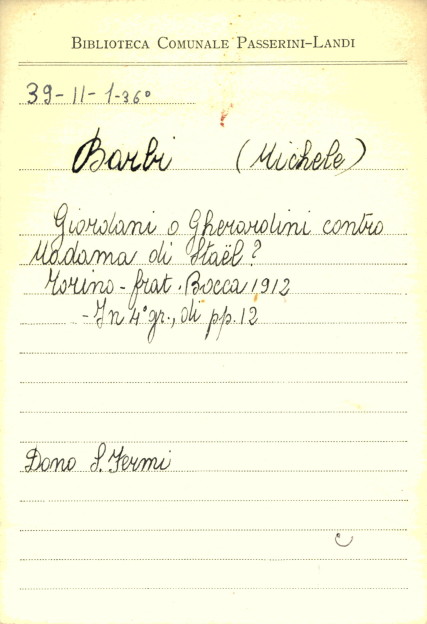 BIBLIOTECA COMUNALE PASSERINI-LANDI
39-II-1-36°
Barbi (Michele)
Giordani o Gherardini contro
Madama di Staël?
Torino - frat. Bocca 1912
- In 4° gr., di pp. 12
Dono S. Fermi
c